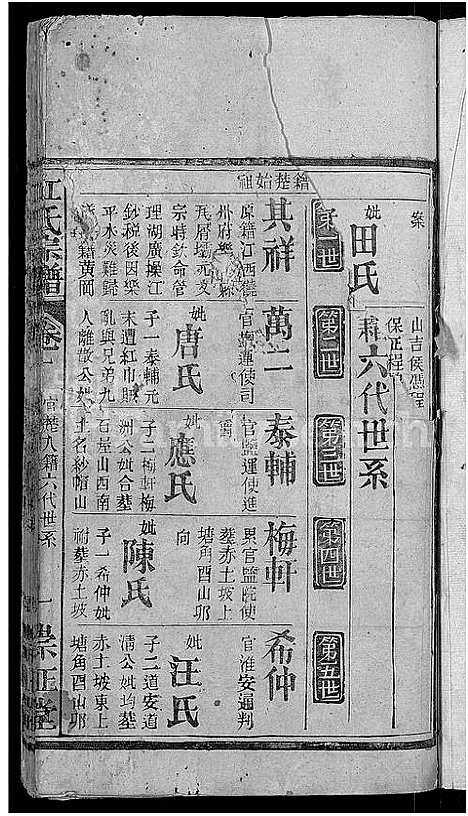 案
妣田氏
山吉侯憑程
保正程
耒六代世系
第一世
第二世
第三世
第四世
第五世
籍楚始祖
其祥
原籍江西饒
州府樂
瓦屑壋元
宗時欽命管
理湖廣操江
鈔稅後因樂
平水災難歸
籍黃岡
萬二
官鹽運使司
妣唐氏
子一泰輔元
末遭紅巾賊
亂與兄弟九
人離散公妣
泰輔
官鹽運使進
妣應氏
子二梅軒梅
洲公妣合墓
石屋山西南
土名紗帽山
梅軒
累官鹽院使
墓赤土坡上
塘角酉山卯
向
妣陳氏
子一希仲妣
祔墓赤土坡
希仲
官淮安通判
妣汪氏
子二道安道
清公妣均墓
赤土坡東上
塘角酉山卯
江氏宗譜
卷
官楚入籍六代世系
一
崇正堂